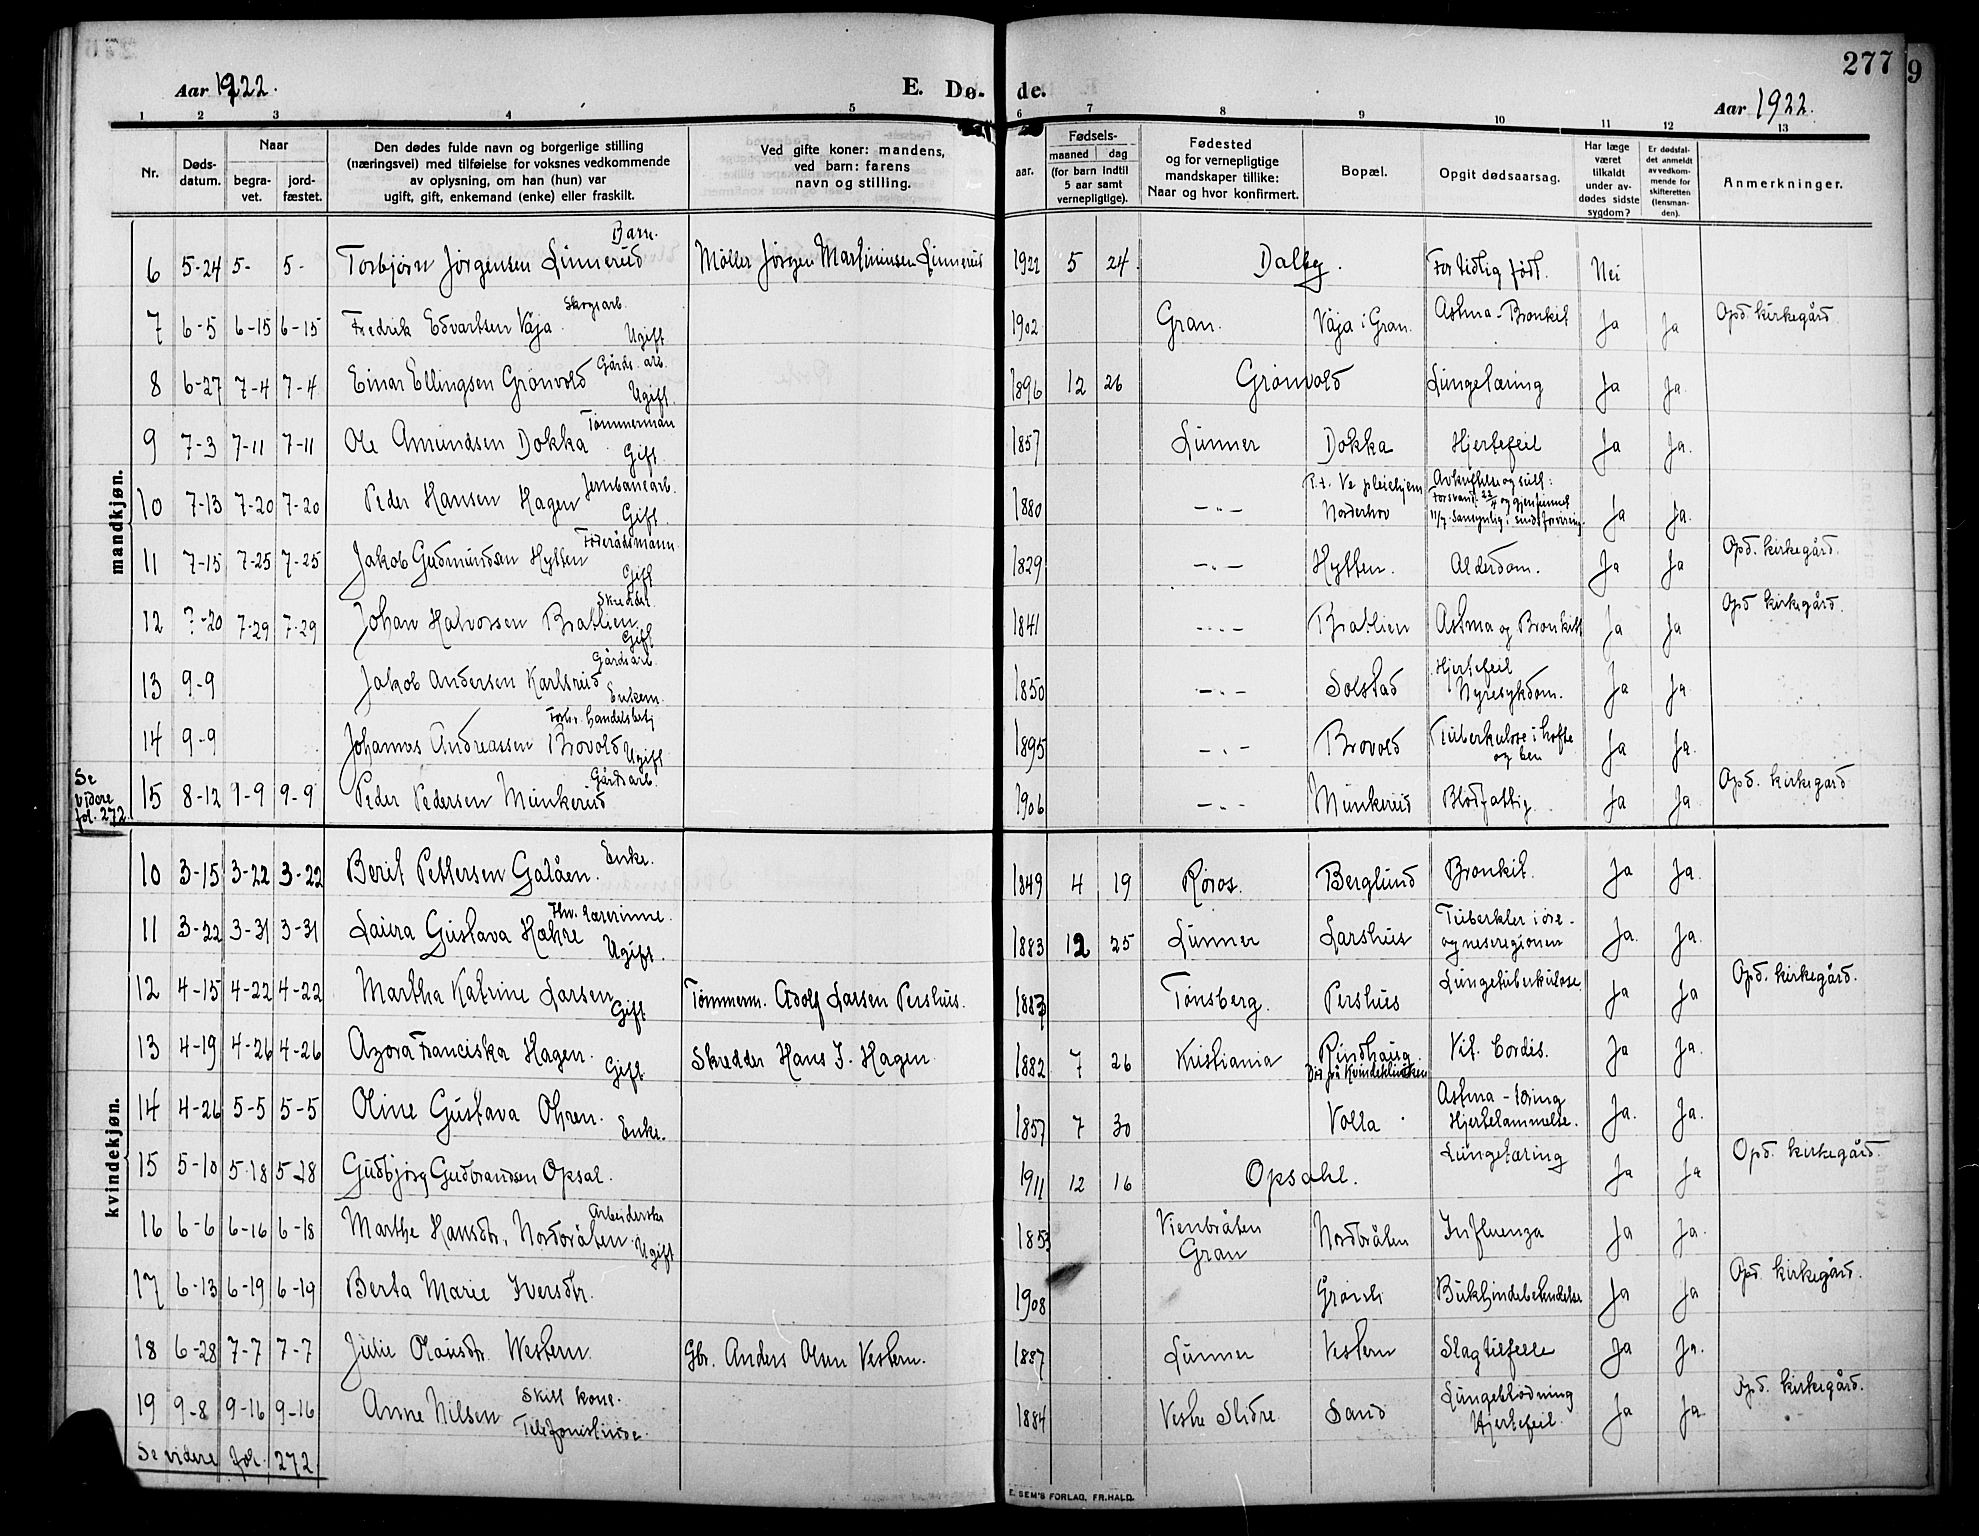 277
9
Aar 1922.
E. Dø-
de.
Aar 1922.
1 2 3 4 5 6 7 8 9 10 11 12 13
Nr.
Døds-
datum.
Naar
begra-
vet.
jord-
fæstet.
Den dødes fulde navn og borgerlige stilling
(næringsvei) med tilføielse for voksnes vedkommende
av oplysning, om han (hun) var
ugift, gift, enkemand (enke) eller fraskilt.
Ved gifte koner: mandens,
ved barn: farens
navn og stilling.
aar.
Fødsels-
maaned dag
(for barn indtil
5 aar samt
vernepligtige).
Fødested
og for vernepligtige
mandskaper tillike:
Naar og hvor konfirmert.
Bopæl.
Opgit dødsaarsag.
Har læge
været
tilkaldt
under av-
dødes sidste
sygdom?
Er dødsfal-
det anmeldt
av vedkom-
mende for
skifteretten
(lensman-
den).
Anmerkninger.
mandkjøn.
Barn.
6 5-24 5- 5- Torbjørn Jørgensen Linnerud Møller Jørgen Martiniusen Linnerud 1922 5 24. Dalby. For tidlig født. Nei
Skogsarb.
7 6-5 6-15 6-15 Fredrik Edvartsen Vøja Ugift 1902 Gran. Vøja i Gran. Astma-Bronkit Ja Ja Opd kirkegård
Gårds. arb.
8 6-27 7-4 7-4 Einar Ellingsen Grønvold Ugift. 1896 12 26 Grønvold Lungetæring Ja Ja.
Tømmermann
9 7-3 7-11 7-11 Ole Amundsen Dokka Gift. 1857 Lunner Dokka Hjertefeil Ja Ja.
Jernbanearb.
10 7-13 7-20 7-20 Peder Hansen Hagen Gift. 1880 -"- P.t. Ve pleiehjem
Norderhov
Avkræftelse og sult:
Ja Ja.
Føderådsmann.
11 7-15 7-25 7-25 Jakob Gudmundsen Hytten Gift 1829 -"- Hytten. Alderdom. Ja Ja Opd. kirkegård.
Skredder.
12 ?-20 7-29 7-29 Johan Halvorsen Bratlien Gift 1841 -"- Bratlien Astma og Bronkitt Ja Ja Opd kirkegård.
Gårdsarb.
13 9-9 Jakob Andersen Karlsrud Enkem. 1850 -"- Solstad Hjertefeil
Nyresykdom. Ja Ja.
Forhv. handelsbetj
14 9-9 Johannes Andreassen Brovold Ugift 1895 -"- Brovold Tuberkulose i hofte
og ben Ja Ja.
Gårdsarb.
15 8-12 9-9 9-9 Peder Pedersen Munkerud 1906 -"- Munkerud Blodfattig. Ja Ja Opd. kirkegård
Se
videre
fol. 272
kvindekjøn.
10 3-15 3-22 3-22 Berit Pettersen Galåen. Enke. 1849 4 19 Røros. Berglund Bronkit. Ja Ja.
Fhv. Lærerinne.
11 3-22 3-31 3-31 Laura Gustava Hæhre Ugift. 1883 12 25 Lunner Larshus Tuberkler i øre-
og neseregionen Ja. Ja.
12 4-15 4-22 4-22 Martha Katrine Larsen Gift Tømmerm. Adolf Larsen Pershus. 1883 Tønsberg. Pershus Lungetuberkulose. Ja Ja Opd. kirkegård.
13 4-19 4-26 4-26 Azora Franciska Hagen. Gift Skredder Hans J. Hagen 1882 7 26 Kristiania Rindhaug.
Død på Kvindeklinikken Vit. Cordis. Ja Ja.
14 4-26 5-5 5-5 Oline Gustava Ohren. Enke. 1857 7 30 Volla Astma-tæring
Hjertelammelse. Ja. Ja.
15 5-10 5-18 5-18 Gudbjørg Gudbrandsen Opsal. 1911 12 16 Opsahl. Lungetæring Ja Ja Opd. kirkegård.
Arbeiderske
16 6-6 6-16 6-18 Marthe Hansdtr. Nordbråten. Ugift 1853 Vienbråten
Gran Nordbråten Influenza Ja Ja.
17 6-13 6-19 6-19 Berta Marie Iversdtr. 1908 Bukhindebetendelse Ja Ja Opd. kirkegård.
18 6-28 7-7 7-7 Julie Olausdtr. Western. Gbr. Anders Olsen Vestern. 1887 Lunner Vestern Slagtilfelle Ja Ja.
19 9-8 9-16 9-16 Anne Nilsen Skilt kone.
Telefonistinde. 1884 Vestre Slidre Sand Lungeblødning
Hjertefeil. Ja Ja Opd. kirkegård.
Se videre fol. 272
E. SEM'S FORLAG, FR.HALD.